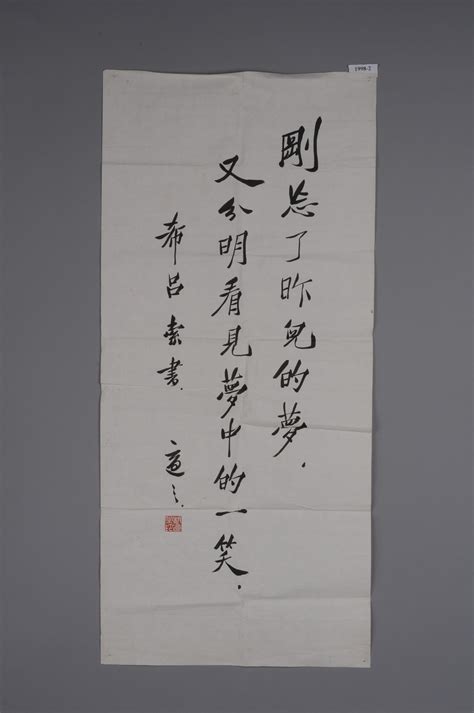 剛忘了昨兒的夢.
又分明看見夢中的一笑.
希呂索書.
適之.
1998-2